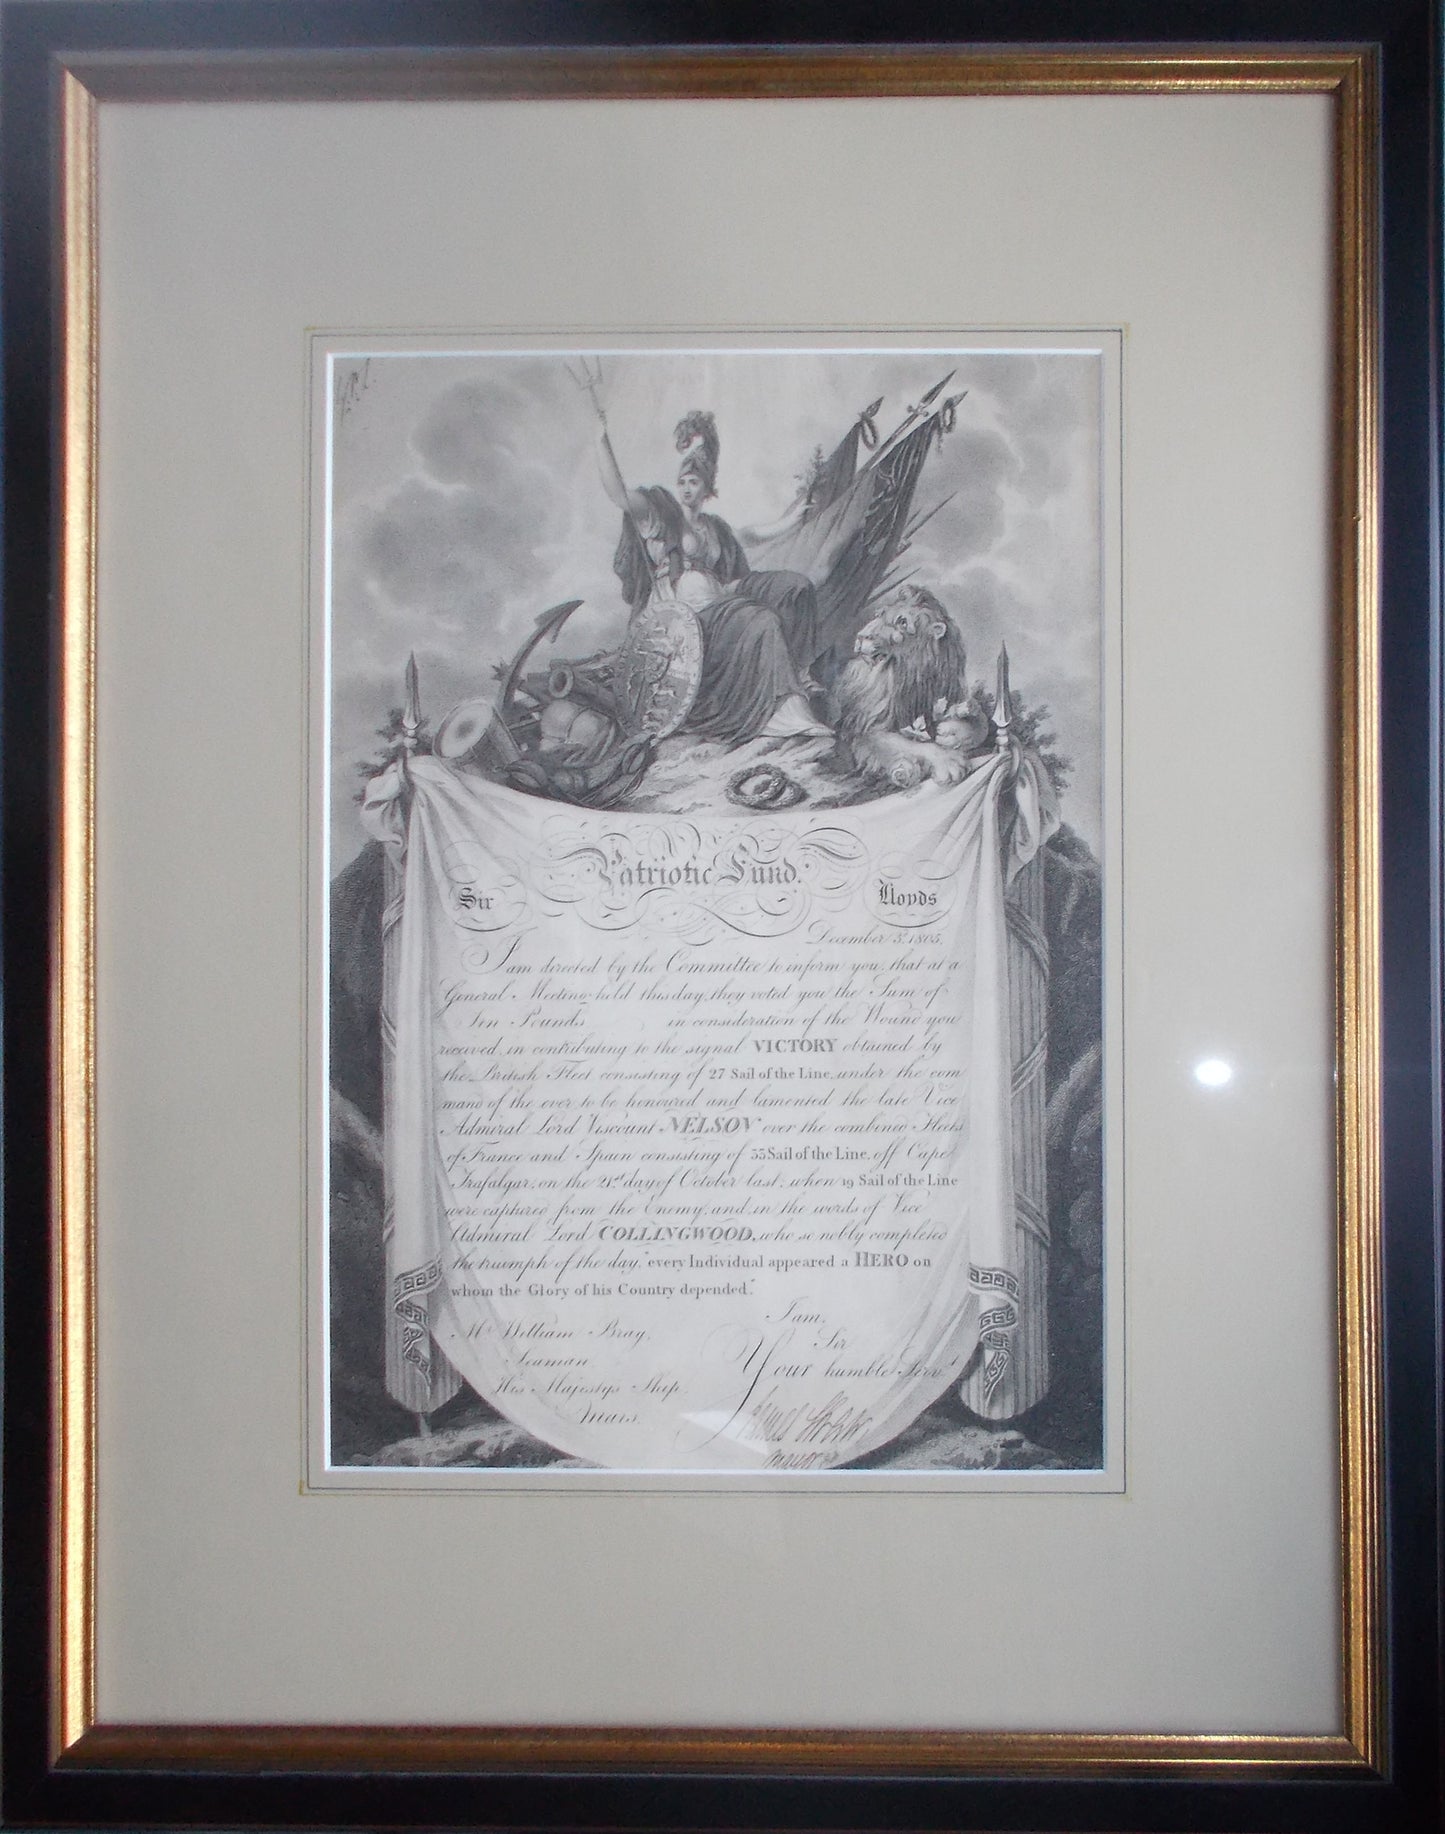 Patriotic Fund.
Sir Lloyds
December 3d. 1805.
I am directed by the Committee to inform you, that at a
General Meeting held this day, they voted you the Sum of
Ten Pounds in consideration of the Wound you
received in contributing to the signal VICTORY obtained by
the British Fleet consisting of 27 Sail of the Line, under the com
mand of the ever to be honoured and lamented the late Vice
Admiral Lord Viscount NELSON over the combined Fleets
of France and Spain consisting of 33 Sail of the Line, off Cape
Trafalgar, on the 21st day of October last; when 19 Sail of the Line
were captured from the Enemy, and, in the words of Vice
Admiral Lord COLLINGWOOD, who so nobly completed
the triumph of the day, "every Individual appeared a HERO on
whom the Glory of his Country depended."
I am,
Sir
Your humble Servt.
Mr William Bray,
Seaman
His Majestys Ship
Mars.
James
Mayor